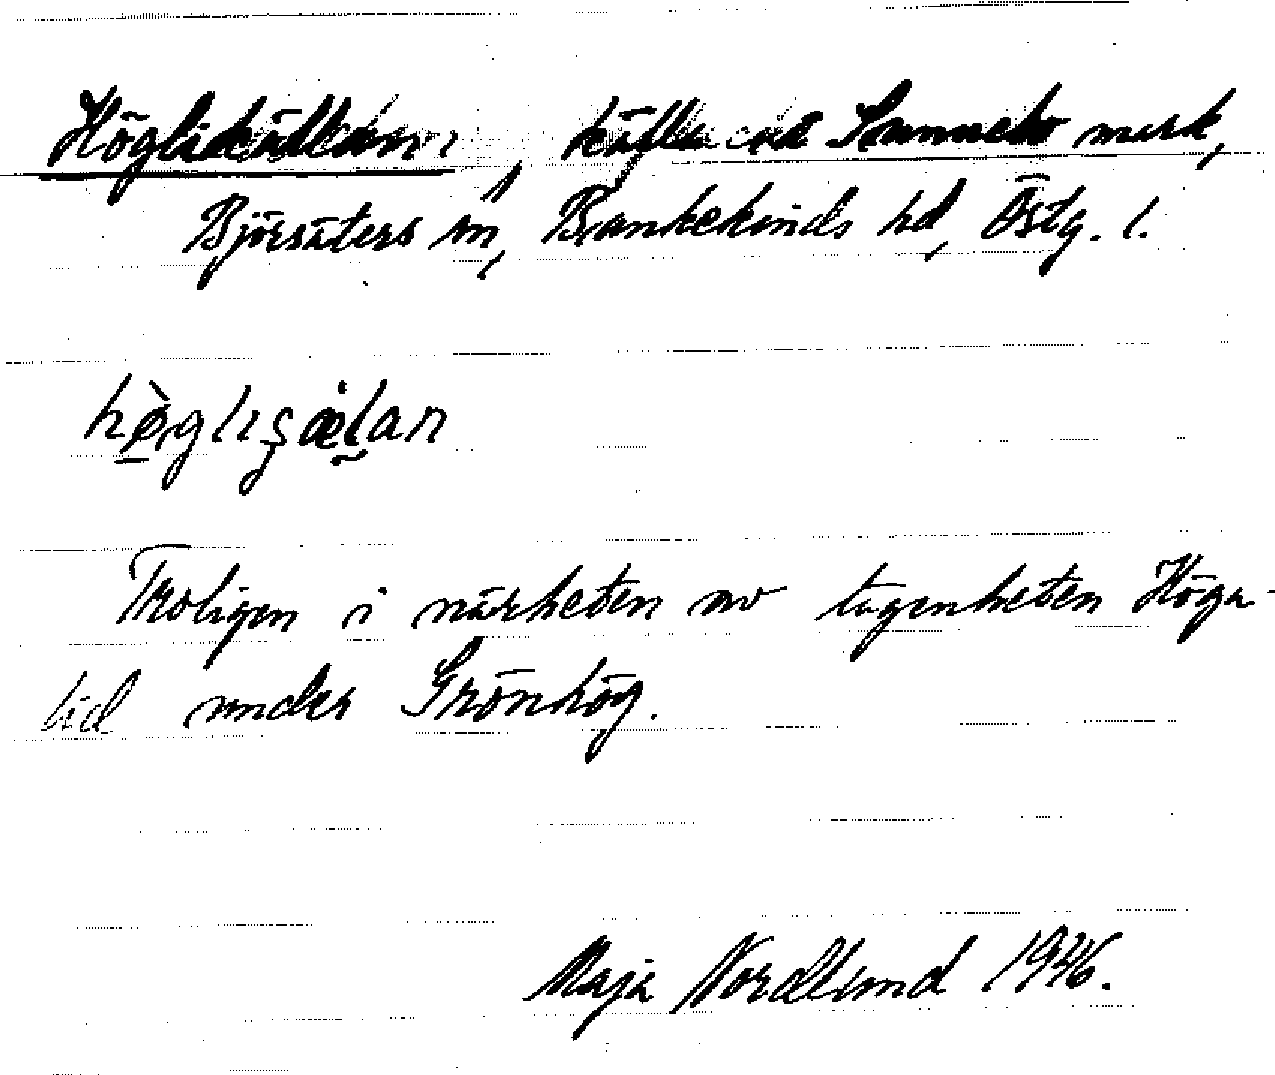 Höglidkällan, källa vid Sanneto mark,
Björsäters sn, Bankekinds hd, Östg. l.
hø̀glıçæ̇lan
Troligen i närheten av lägenheten Höga-
lid under Grönhög.
Maja Nordlund 1946.